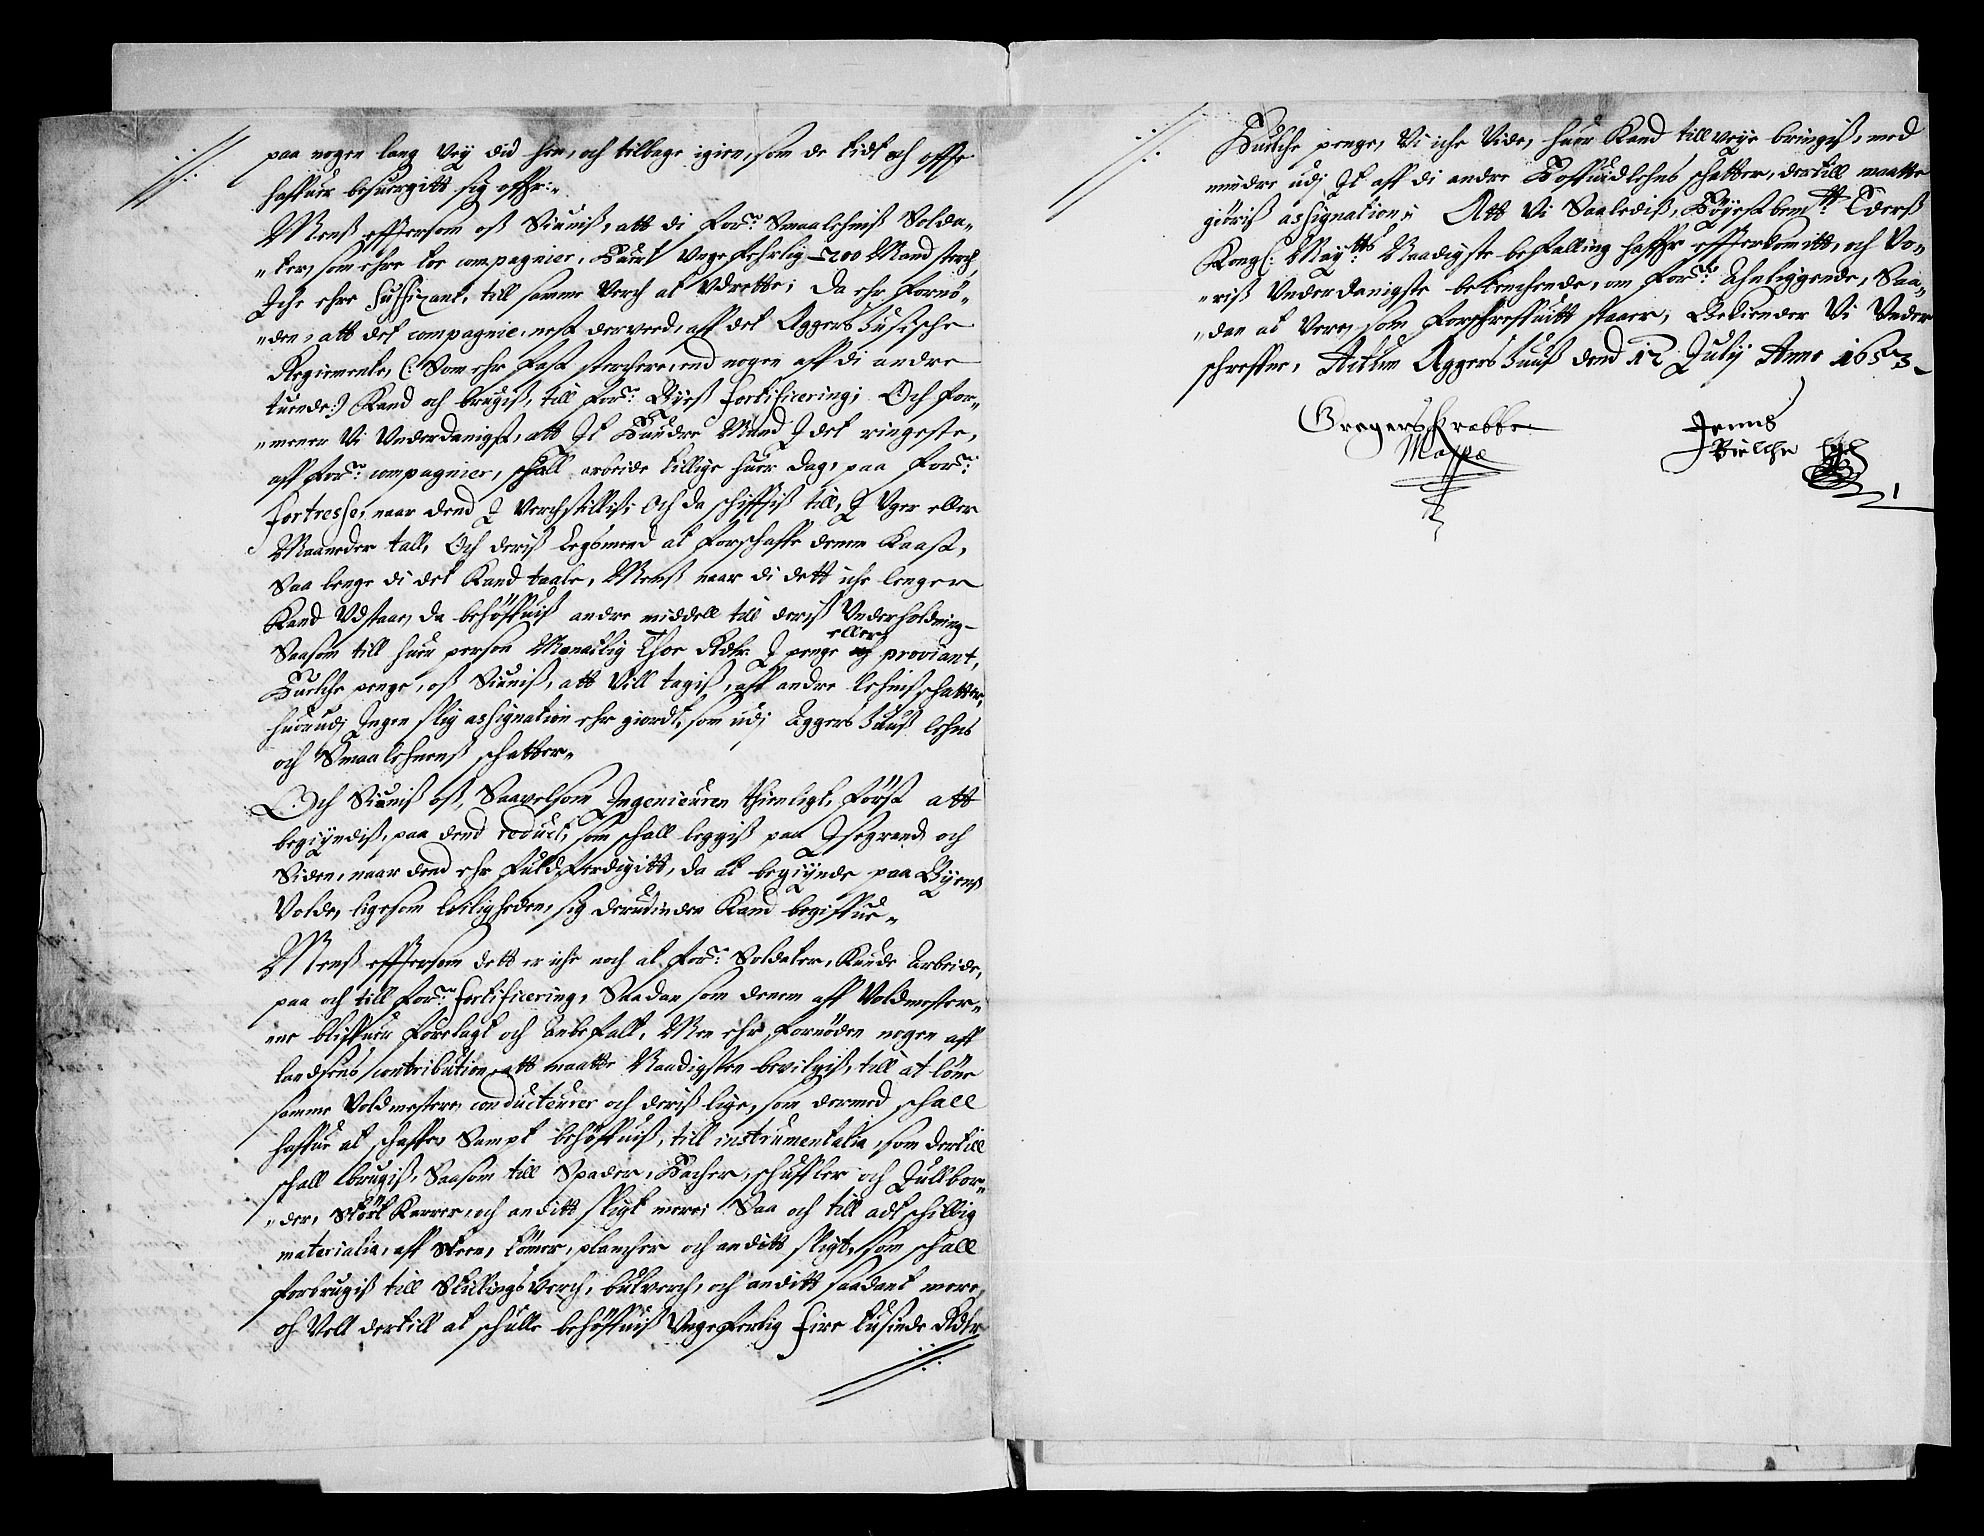 paa nogen lang Vey did hen, och tilbage igien, som de tidt och offte
haffuer besuergitt sig offr:
Mens effterson oß Siunis, att di for:ne Smaalehnß Solda-
ter, som ehre toe compagnier, huert Ungefehrlig 200 Mand sterch
Iche ehre suffizant, till samme Verch at Udrette; Da ehr fornö-
den, att det compagnie, nest derved, aff det Aggershusische
Regimente, (: Som ehr fast sterchere, end nogen aff di andre
tuende:) Kand och brugis, till for:ne Byeß fortificering; Och for-
mener Vi Underdanigst, att It Hundre Mand I det ringeste,
aff for:ne compagnier, schall arbeide tillige huer dag, paa for:ne
fortresse, naar dend I Verchstillis; Och da schifftis till, I Uger eller
Maaneder tall, Och deriß Legsmend at forschaffe denem Kaast,
Saa lenge di det Kand taale, Menß naar di dett iche lenger
Kand Udstaa, da behöffuis andre middell till deriß Underholdning
Saasom till huer person Maanetlig Thoe Rdlr. I penge eller proviant,
Huilche penge, oß Siunis, att Vill tagis, aff andre lehnß schatter,
huorudj Ingen slig assignation ehr giordt, som udj Aggershuuß lehns
och Smaalehnenß schatter.
Och Siunis oß, Saavelsom Ingenieuren thienligt, först att
begyndis, paa dend redout, som schall leggis paa Isegrand, och
Siden, naar dend ehr fuldferdigitt, da at begynde paa Byenß
Volde, ligesom leiligheden, sig derudinden Kand begiffue.
Menß effterson dett er iche noch at for:ne Soldater, Kunde Arbeide,
paa och till for:ne fortificering, Saadan som denem aff Voldmester-
ne bliffuer forelagt och anbefalt, Men ehr fornöden nogen aff
landsens contribution, att maatte Naadigsten bevilgis, till at löne
samme Voldmestere, conducteurer och deriß lige, som dermed schall
haffue at schaffe, Sampt behöffuis, till instrumentalia, som dertill
schall brugis, Saasom till Spader, Hacher, schuffler och Hullbor-
der, Stört Karrer, och anditt sligt mere; Saa och till adtschillig
materialia, aff Steen, tömer, plancher och anditt sligt, som schall
forbrugis till Stillings Verch, bulverch, och anditt saadant mere,
och Vell dertill at schulle behöffuis Ungeferlig fire tusinde Rdlr
Huilche penge, Vi iche Vide, huor Kand till veye bringis, med
mindre udj It aff di andre Hoffuidlehns schatter, dertill maatte
giöriß assignation; Att Vi Saaledis, Höyestbem:te Eders
Kong: May:tts Naadigste befalling haffr efferkomitt, och Vo-
riß Underdanigste betenchende, om for:ne Ahnliggende, Saa-
dan at Vere, som forschreffuitt staaer, Bekiender Vi Under
schreffne, Actum Aggershuuß dend 12 July Anno 1653
Gregers Krabbe
Jenns
Bielche